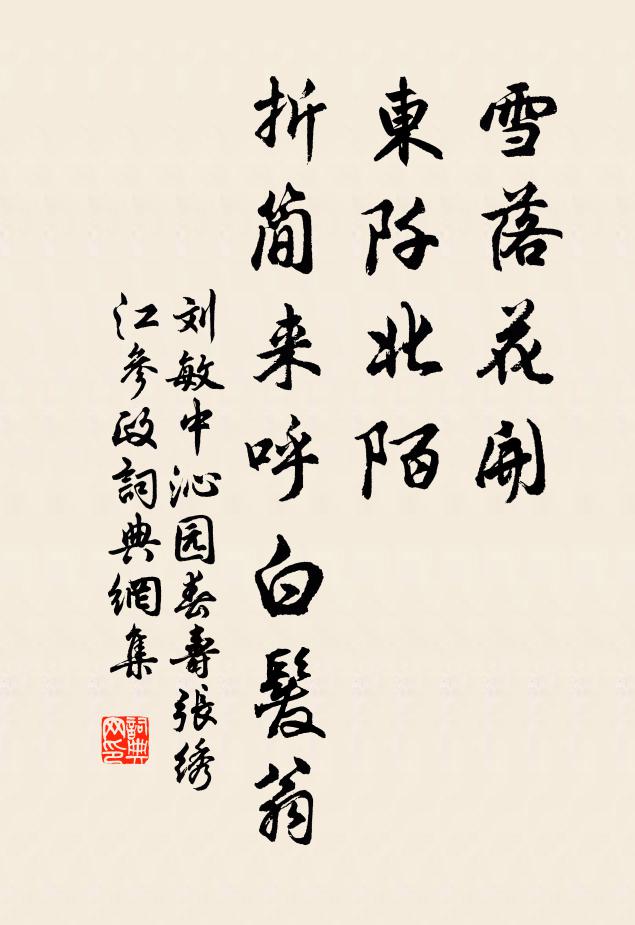 雪落花開
東阡北陌
折简来呼白髮翁
刘敏中沁园春壽張绣
江參政詞典網集
詞典网印